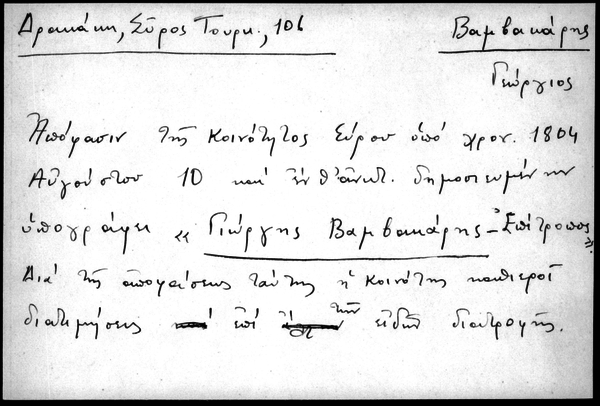 Δρακάκη, Σῦρος Τουρκ., 106
Βαμβακάρης
Γεώργιος
Ἀπόφασιν τῆς Κοινότητος Σύρου ὑπό χρον. 1804
Αὐγούστου 10 καί δημοσιευμένην
ὑπογράφει « Γιώργης Βαμβακάρης - Ἐπίτροπος ».
Διά τῆς ἀποφάσεως ταύτης ἡ Κοινότης καθιεροῖ
διατιμήσεις ἐπί τῶν εἰδῶν διατροφῆς.